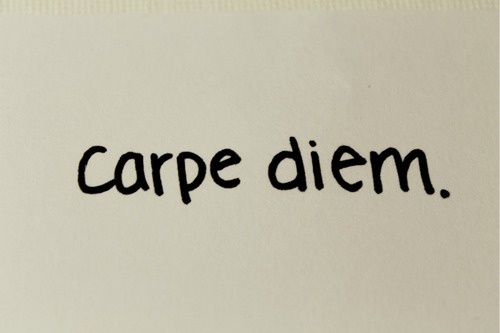 carpe diem.